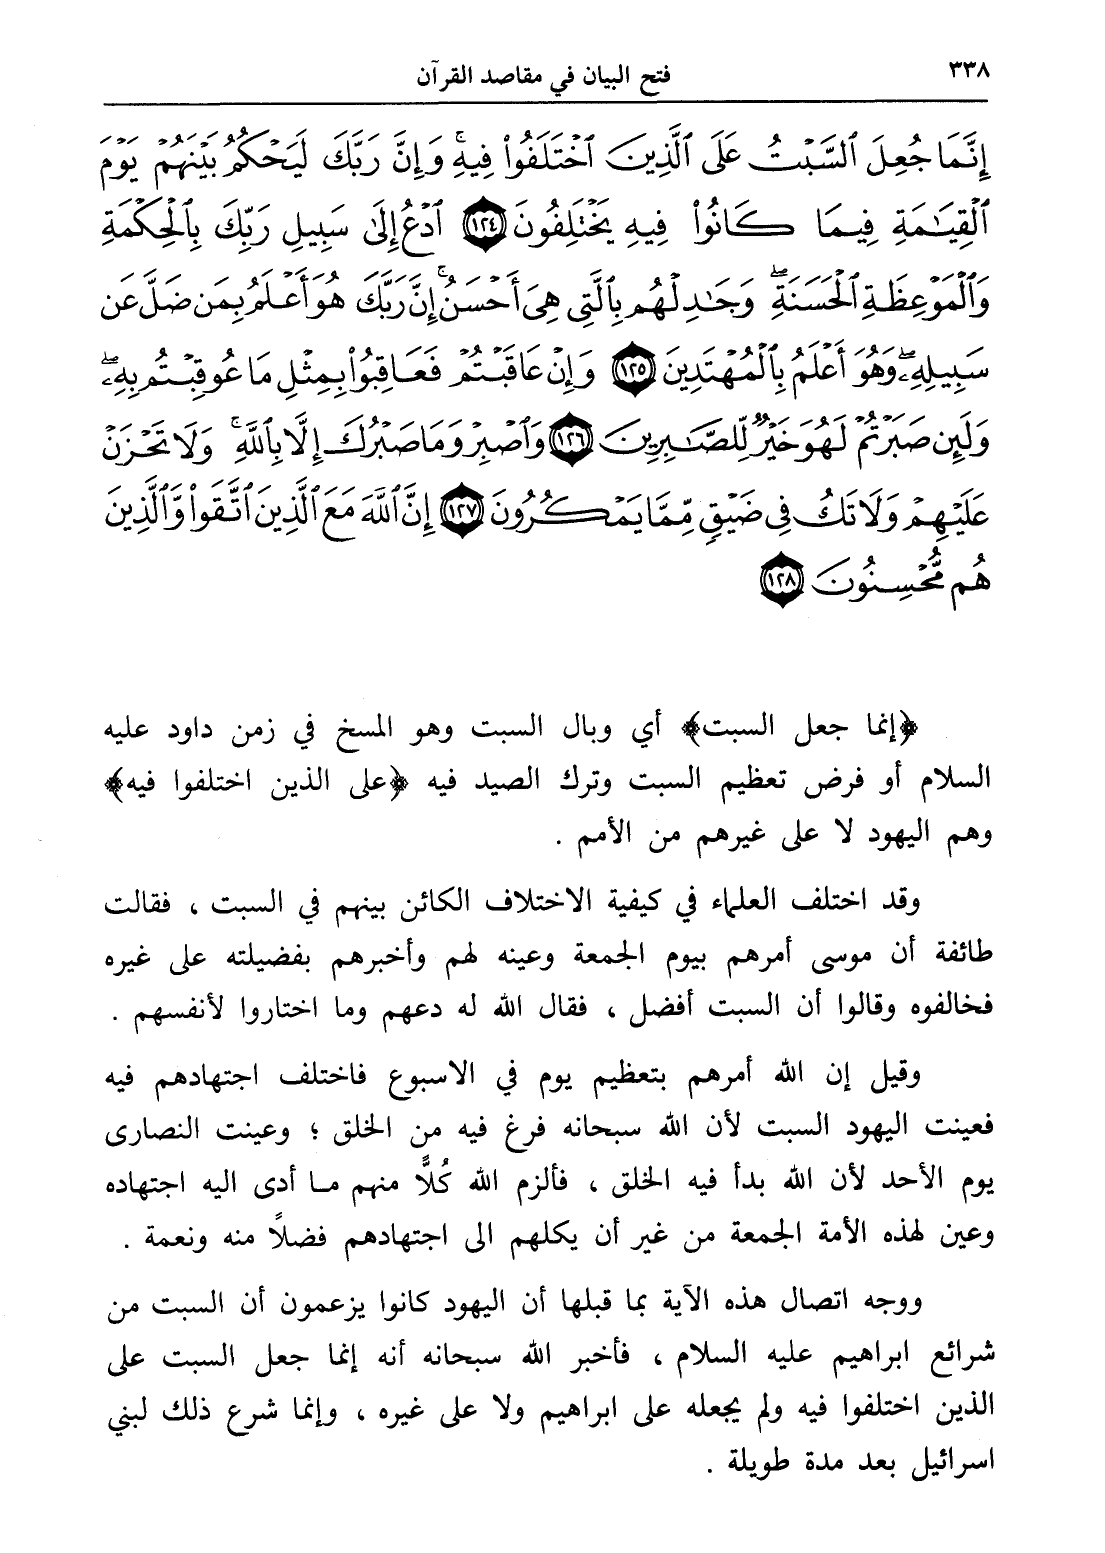 ٣٣٨ فتح البيان في مقاصد القرآن
إِنَّمَا جُعِلَ ٱلسَّبۡتُ عَلَى ٱلَّذِينَ ٱخۡتَلَفُواْ فِيهِۚ وَإِنَّ رَبَّكَ لَيَحۡكُمُ بَيۡنَهُمۡ يَوۡمَ
ٱلۡقِيَٰمَةِ فِيمَا كَانُواْ فِيهِ يَخۡتَلِفُونَ ١٢٤ ٱدۡعُ إِلَىٰ سَبِيلِ رَبِّكَ بِٱلۡحِكۡمَةِ
وَٱلۡمَوۡعِظَةِ ٱلۡحَسَنَةِۖ وَجَٰدِلۡهُم بِٱلَّتِي هِيَ أَحۡسَنُۚ إِنَّ رَبَّكَ هُوَ أَعۡلَمُ بِمَن ضَلَّ عَن
سَبِيلِهِۦۖ وَهُوَ أَعۡلَمُ بِٱلۡمُهۡتَدِينَ ١٢٥ وَإِنۡ عَاقَبۡتُمۡ فَعَاقِبُواْ بِمِثۡلِ مَا عُوقِبۡتُم بِهِۦۖ
وَلَئِن صَبَرۡتُمۡ لَهُوَ خَيۡرٞ لِّلصَّٰبِرِينَ ١٢٦ وَٱصۡبِرۡ وَمَا صَبۡرُكَ إِلَّا بِٱللَّهِۚ وَلَا تَحۡزَنۡ
عَلَيۡهِمۡ وَلَا تَكُ فِي ضَيۡقٖ مِّمَّا يَمۡكُرُونَ ١٢٧ إِنَّ ٱللَّهَ مَعَ ٱلَّذِينَ ٱتَّقَواْ وَّٱلَّذِينَ
هُم مُّحۡسِنُونَ ١٢٨
﴿إنما جعل السبت﴾ أي وبال السبت وهو المسخ في زمن داود عليه
السلام أو فرض تعظيم السبت وترك الصيد فيه ﴿على الذين اختلفوا فيه﴾
وهم اليهود لا على غيرهم من الأمم .
وقد اختلف العلماء في كيفية الاختلاف الكائن بينهم في السبت ، فقالت
طائفة أن موسى أمرهم بيوم الجمعة وعينه لهم وأخبرهم بفضيلته على غيره
فخالفوه وقالوا أن السبت أفضل ، فقال الله له دعهم وما اختاروا لأنفسهم .
وقيل إن الله أمرهم بتعظيم يوم في الاسبوع فاختلف اجتهادهم فيه
فعينت اليهود السبت لأن الله سبحانه فرغ فيه من الخلق ؛ وعينت النصارى
يوم الأحد لأن الله بدأ فيه الخلق ، فألزم الله كُلاًّ منهم ما أدى اليه اجتهاده
وعين لهذه الأمة الجمعة من غير أن يكلهم الى اجتهادهم فضلاً منه ونعمة .
ووجه اتصال هذه الآية بما قبلها أن اليهود كانوا يزعمون أن السبت من
شرائع ابراهيم عليه السلام ، فأخبر الله سبحانه أنه إنما جعل السبت على
الذين اختلفوا فيه ولم يجعله على ابراهيم ولا على غيره ، وإنما شرع ذلك لبني
اسرائيل بعد مدة طويلة .